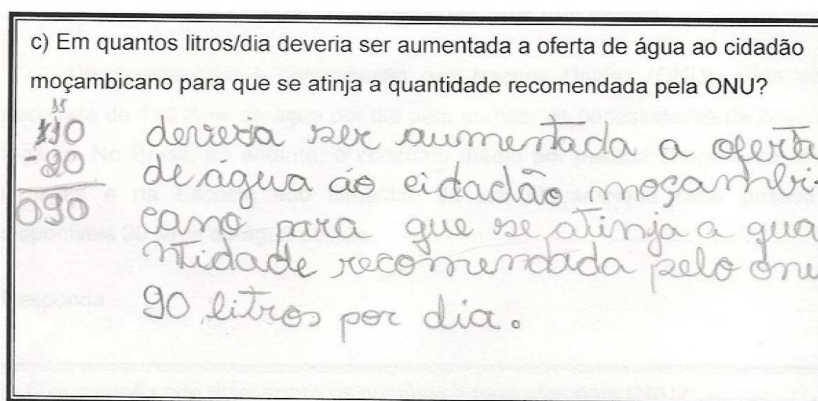 c) Em quantos litros/dia deveria ser aumentada a oferta de água ao cidadão
moçambicano para que se atinja a quantidade recomendada pela ONU?
110
-20
090
devera ser aumentada a oferta
de agua ao cidadão moçambi
cano para que se atinja a qua
ntidade recomendada pelo onu
90 litros por dia.